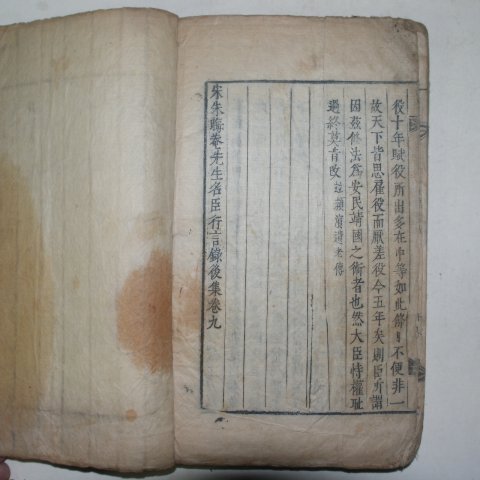 役十年賦役所出多在中等如此條目不便非一
故天下皆思雇役而厭差役今五年矣則臣所謂
因茲修法爲安民靖國之術者也然大臣恃權耻
過終莫肯改 並潁濱遺老傳
宋朱晦菴先生名臣言行錄後集卷九